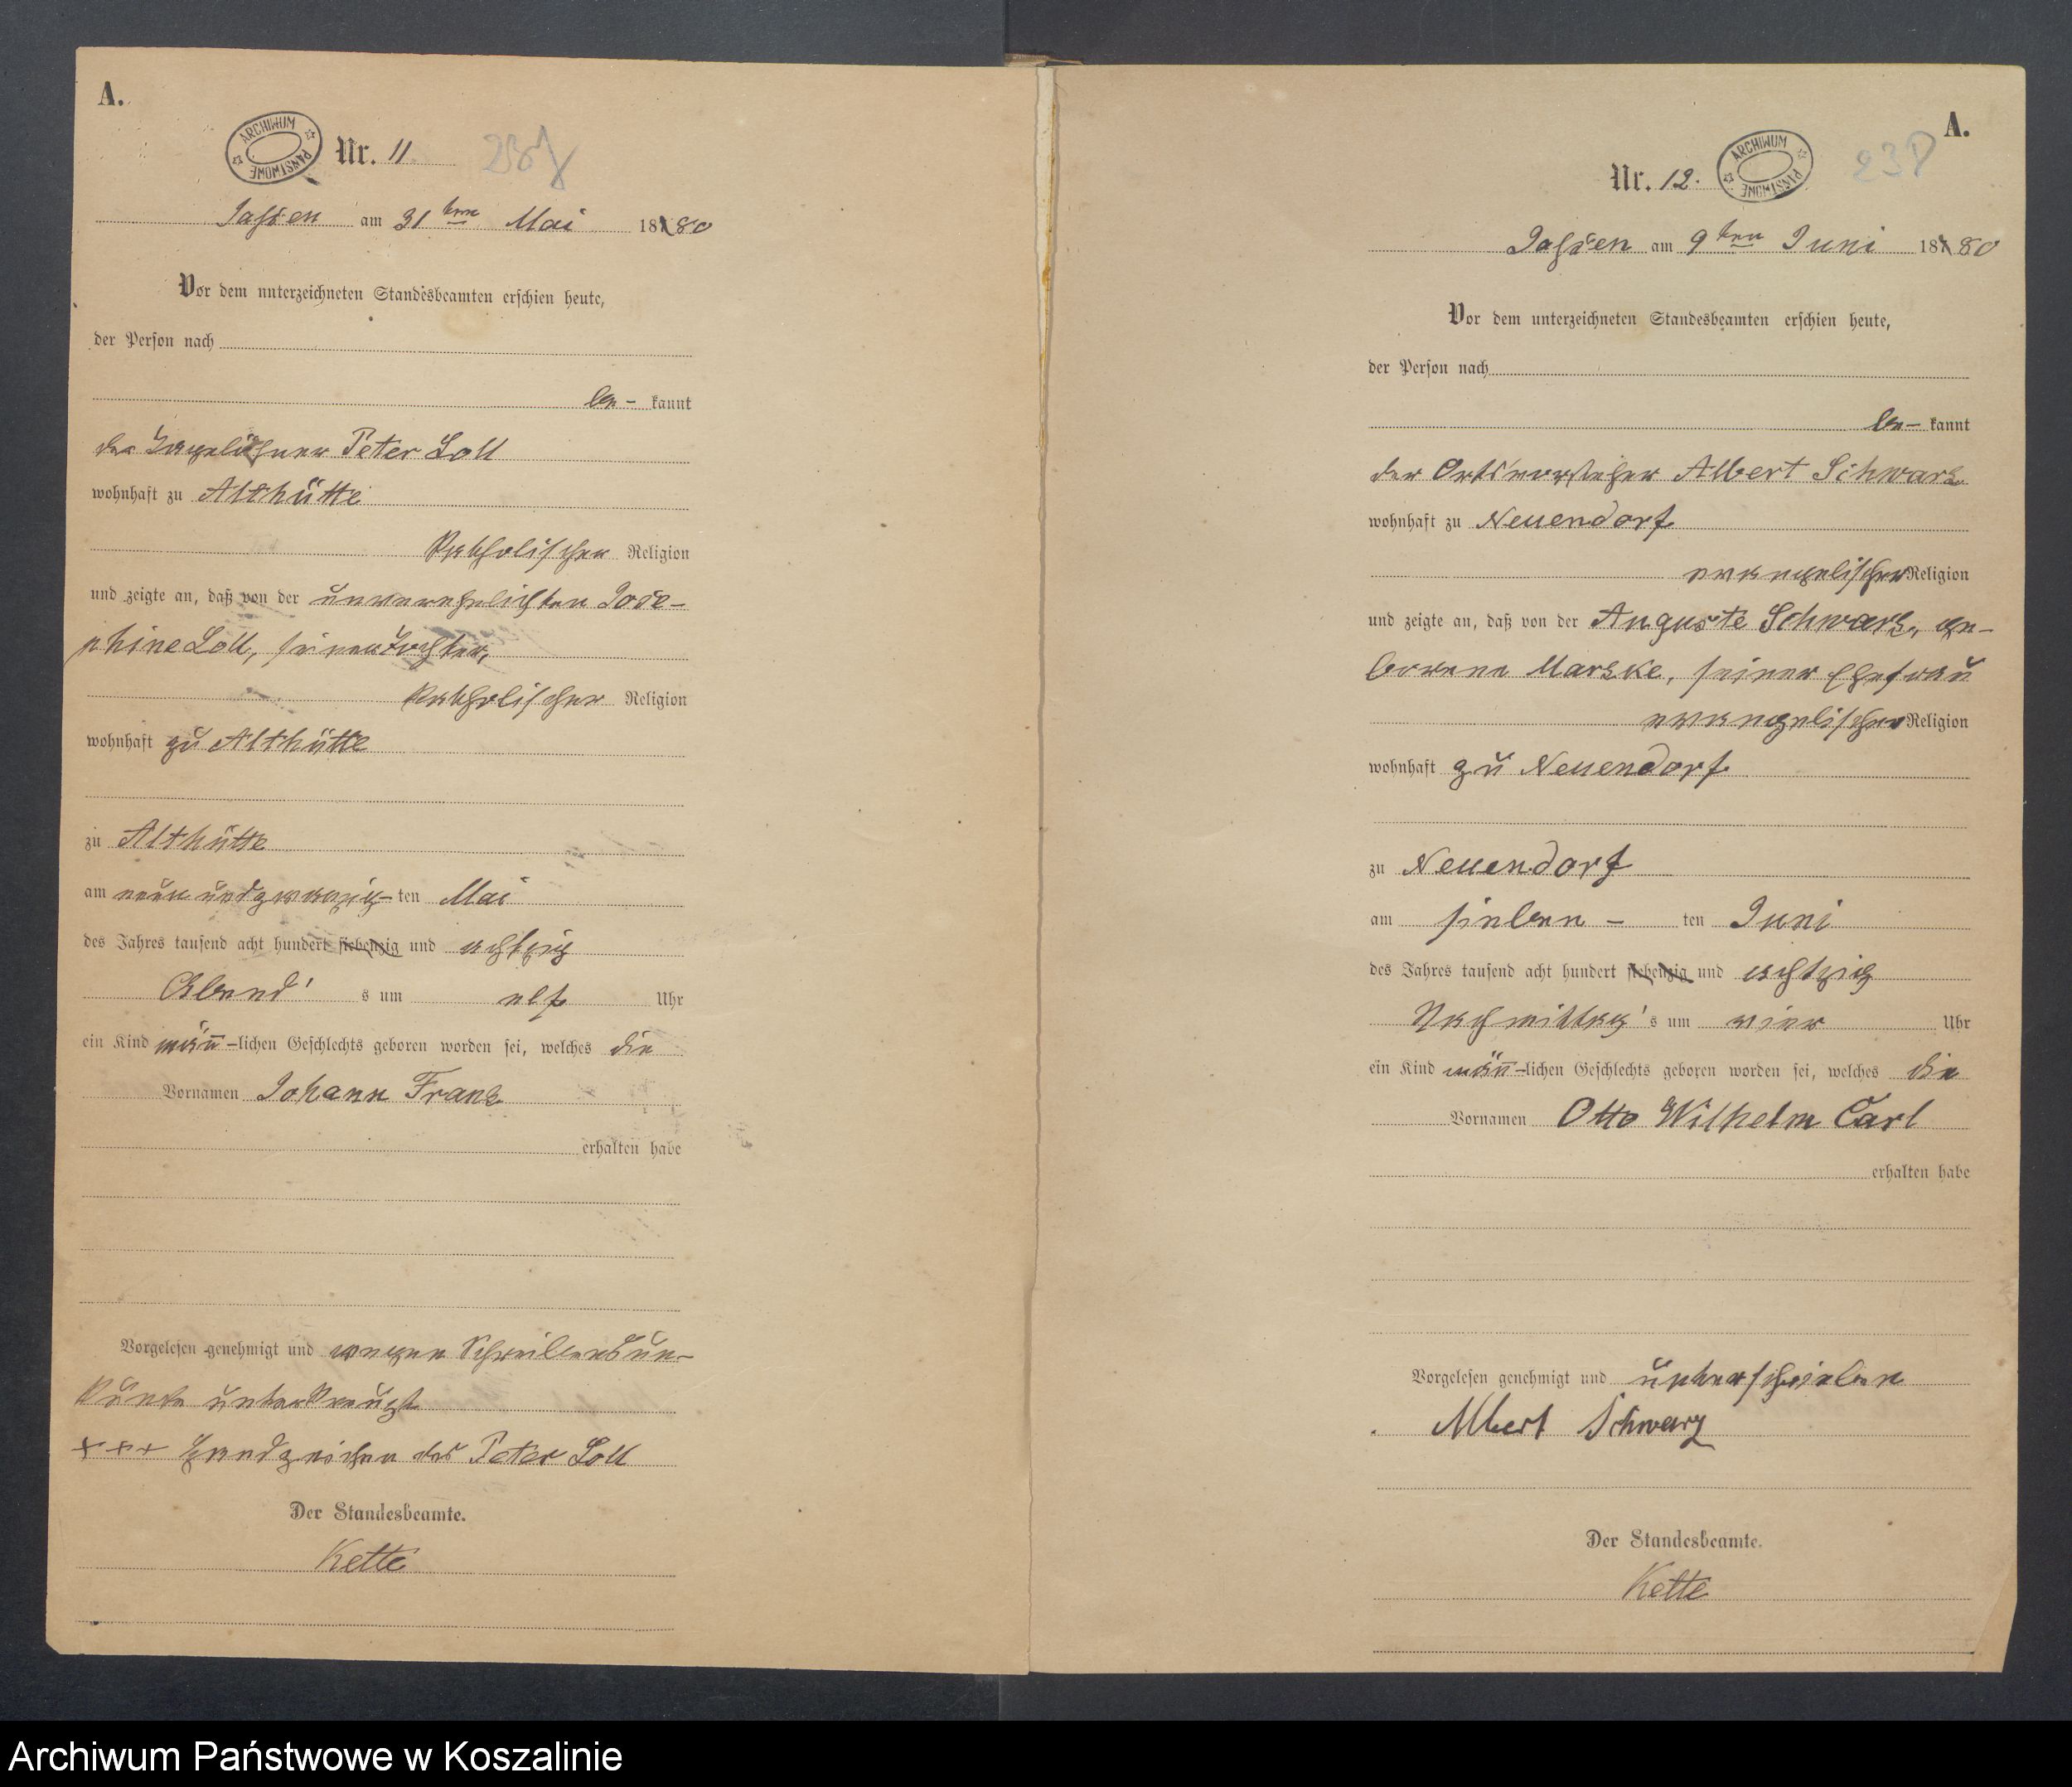 A.
ARCHIWUM PAŃSTWOWE
Nr. 11.
Jassen am 31ten Mai 1880
Vor dem unterzeichneten Standesbeamten erschien heute,
der Person nach
be- kannt
der Tagelöhner Peter Loll
wohnhaft zu Althütte
katholischer Religion
und zeigte an, daß von der unverehelichten Jose-
phine Loll, seiner Tochter,
katholischer Religion
wohnhaft zu Althütte
zu Althütte
am neun und zwanzig- ten Mai
des Jahres tausend acht hundert siebenzig und achtzig
Abend's um elf Uhr
ein Kind män̄-lichen Geschlechts geboren worden sei, welches die
Vornamen Johann Franz
erhalten habe
Vorgelesen genehmigt und wegen Schreibensun-
kunde unterkreuzt
+++ Handzeichen des Peter Loll
Der Standesbeamte.
Kette
A.
Nr. 12.
ARCHIWUM PAŃSTWOWE
Jassen am 9ten Juni 1880
Vor dem unterzeichneten Standesbeamten erschien heute,
der Person nach
be- kannt
der Ortsvorsteher Albert Schwarz
wohnhaft zu Neuendorf
evangelischer Religion
und zeigte an, daß von der Auguste Schwarz, ge-
borene Marzke, seiner Ehefrau
evangelischer Religion
wohnhaft zu Neuendorf
zu Neuendorf
am sieben - ten Juni
des Jahres tausend acht hundert siebenzig und achtzig
Nachmittag's um vier Uhr
ein Kind män̄-lichen Geschlechts geboren worden sei, welches die
Vornamen Otto Wilhelm Carl
erhalten habe
Vorgelesen genehmigt und unterschrieben
Albert Schwarz
Der Standesbeamte.
Kette
Archiwum Państwowe w Koszalinie